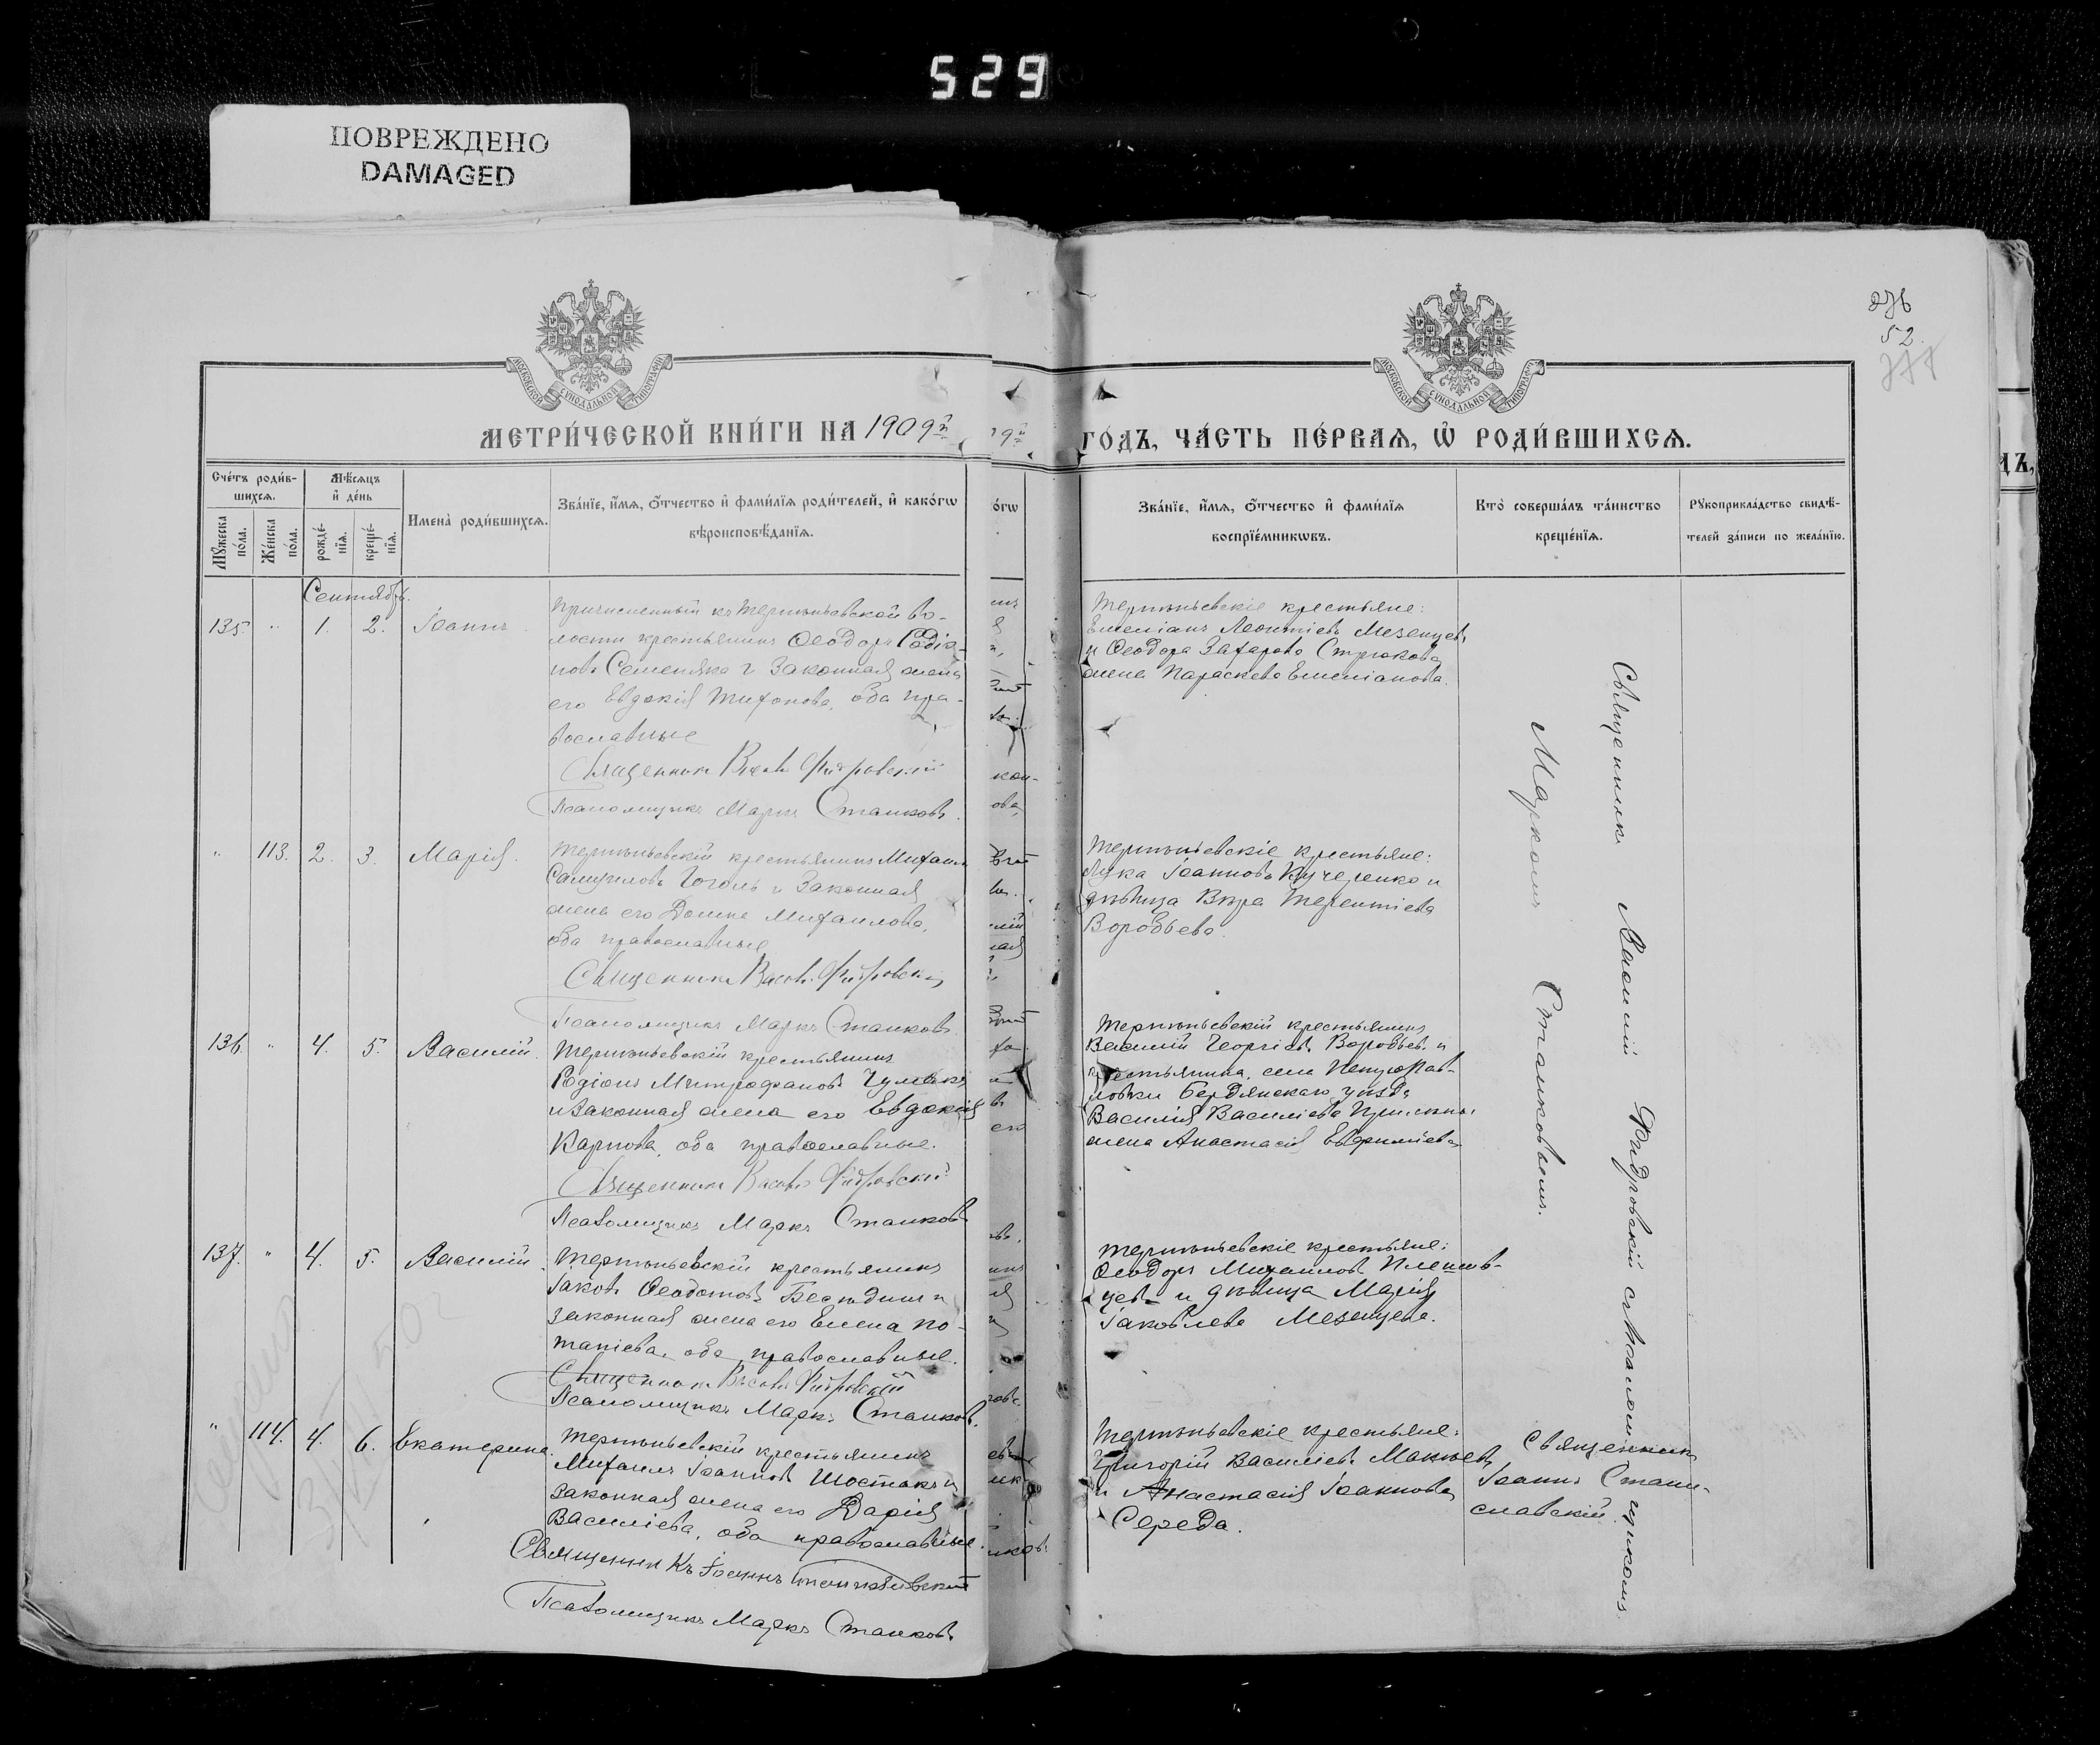 529
ПОВРЕЖДЕНО
DAMAGED
276
52
277
МОСКОВСКОЙ СѴНОДАЛЬНОЙ ТИПОГРАФІИ
МОСКОВСКОЙ СѴНОДАЛЬНОЙ ТИПОГРАФІИ
МЕТРИ́ЧЕСКОЙ КНИ́ГИ НА 1909й
9й
ГО́ДЪ, ЧА́СТЬ ПЕ́РВАѦ, Ѡ҆ РОДИ́ВШИХСѦ.
Сче́тъ роди́в-
шихсѧ.
Мꙋ́жеска
по́ла.
Же́нска
по́ла.
Мѣ́сѧцъ
и҆ де́нь
рожде́-
нїѧ.
креще́-
нїѧ.
Имена̀ роди́вшихсѧ.
Зва́нїе, и҆́мѧ, ѻ҆́тчество и҆ фами́лїѧ роди́телей, и҆ како́гѡ
вѣроисповѣ́данїѧ.
о́гѡ
Зва́нїе, и҆́мѧ, ѻ҆́тчество и҆ фами́лїѧ
воспрїе́мникѡвъ.
Кто̀ соверша́лъ та́инство
креще́нїѧ.
Рꙋкоприкла́дство свидѣ́-
телей за́писи по жела́нїю.
Сентябрь.
135. " 1. 2. Іоаннъ
Причисленный къ Терпѣньевской во-
лости крестьянинъ Ѳеодоръ Родіо-
новъ Семеняка и законная жена
его Евдокія Тихонова, оба пра-
вославные
Священникъ Васил. Фидровскій
Псаломщикъ Маркъ Станковъ.
Терпѣньевскіе крестьяне:
Емеліанъ Леонтіевъ Мезенцевъ
и Ѳеодора Захарова Стрюкова
жена Параскева Емеліанова.
" 113. 2. 3. Марія.
Терпѣньевскій крестьянинъ Михаилъ
Самуиловъ Гоголь и законная
жена его Домна Михаилова,
оба православные
Священникъ Васил. Фидровскій
Псаломщикъ Маркъ Станковъ
Терпѣньевскіе крестьяне:
Лука Іоанновъ Кучеренко и
дѣвица Вѣра Терентіева
Воробьева.
136. " 4. 5. Василій.
Терпѣньевскій крестьянинъ
Родіонъ Митрофановъ Чумакъ
и законная жена его Евдокія
Карпова, оба православные.
Священникъ Васил. Фидровскій
Псаломщикъ Маркъ Станковъ
Терпѣньевскій крестьянинъ
Василій Георгіевъ Воробьевъ и
крестьянина села
Бердянскаго уѣзда
Василія Василіева
жена Анастасія Евфиміева
137. " 4. 5. Василій.
Терпѣньевскій крестьянинъ
Іаковъ Ѳеодотовъ Бесѣдинъ и
законная жена его Елена По-
тапіева, оба православные.
Священникъ Васил. Фидровскій
Псаломщикъ Маркъ Станковъ.
Терпѣньевскіе крестьяне:
Ѳеодоръ Михаиловъ
и дѣвица Марія
Іаковлева Мезенцева.
" 114. 4. 6. Екатерина.
Терпѣньевскій крестьянинъ
Михаилъ Іоанновъ Шостакъ и
законная жена его Дарія
Василіева, оба православные.
Священникъ Іоаннъ Станиславскій
Псаломщикъ Маркъ Станковъ
Терпѣньевскіе крестьяне:
Григорій Василіевъ Макѣевъ
и Анастасія Іоаннова
Середа.
Священникъ Василій Фидровскій съ псаломщикомъ
Маркомъ Станковымъ.
Священникъ
Іоаннъ Стани-
славскій.